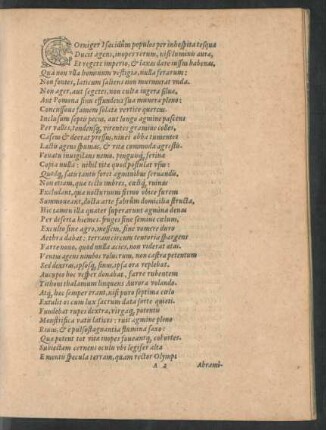 Coeniger Isacidûm populos per inhospita tesqua
Ducit agens, imperterrum, nisi numinis aura,
Et regere imperio, & lentas dare iussus habenas,
Qua non vlla hominum vestigia, nulla ferarum:
Non fontes, laticum saliens non murmurat vnda.
Non ager, aut segetes, non culta iugera silua,
Aut Pomona sinu effundens sua munera pleno:
Concussus fatuum solato vertice quercus.
Inclusum septis pecus, aut longo agmine pascens
Per valles, tondensq́; virentes gramine colles.
Caseus & deerat pressus, niuei abba tumentes
Lactis agens spumas, & vita commoda
Venatu inuigilens nemo, pinguisq́; ferina
Copia nulla: nihil vitæ quod postulat vsus:
Quodq́; satis tanto foret agminibus seruandis,
Non etiam, quæ tecta imbres, æstusq́; ruinas
Excludant, quæ nocturnum strato obire sopore
Summoueant, ducta arte domicilia structa,
Hic tamen illa quater superarunt agmina denas
Per deserta hiemes. fruges sine semine cœlum,
Excultæ sine agro, messem, sine vomere duro
Aethra dabat: terram circum tentoria spargens
Farre nouo, quod nulla acies, non viderat ætas.
Ventus agens nimbos volucrum, non castra petentum
Sed dextras, ipsosq́; sinus, ipsa ora replebat,
Aucupio hoc vesper donabat, farre rubentem
Tithoni thalamum linquens Aurora volando.
Atq́; hoc semper erat, nisi pura septima cœlo
Extulit os cum lux sacrum data sorte quieti.
Fundebat rupes dextra, virgaq́; potenti
Monstrifica ratu latices: ruit agmine pleno
Riuus, & è pulso stagnantia flumina saxo:
Qua potent tot vita imper fouerentq́; cohortes.
Subiectam cernens oculis vbi legifer alta
E montis specula terram, quam rector Olympi
A 2 Abrami-